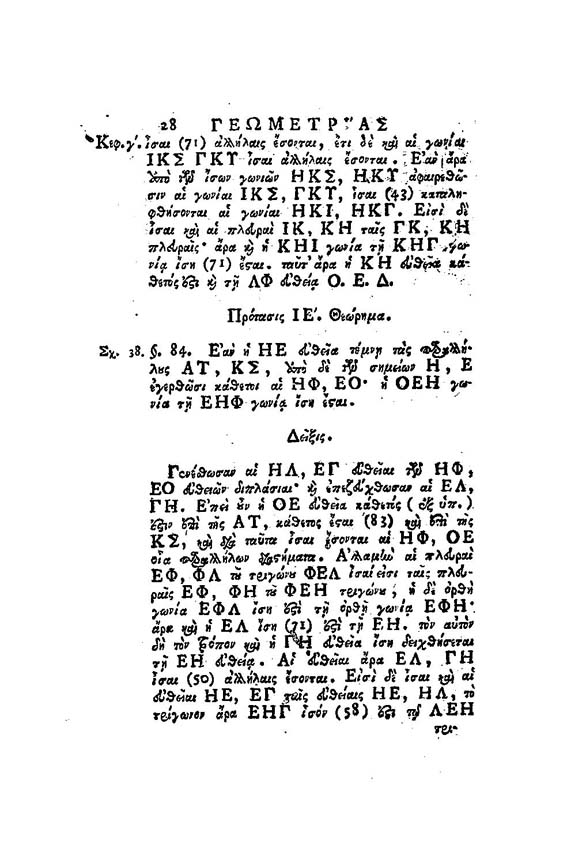 28 ΓΕΩΜΕΤΡΙΑΣ
Κεφ. γ΄. ἶσαι (71) ἀλλήλαις ἔσονται, ἔτι δὲ καὶ αἱ γωνίαι
ΙΚΣ ΓΚΤ ἶσαι ἀλλήλαις ἔσονται. Ἐὰν ἄρα
ὑπὸ τῶν ἴσων γωνιῶν ΗΚΣ, ΗΚΤ ἀφαιρεθῶ-
σιν αἱ γωνίαι ΙΚΣ, ΓΚΤ, ἶσαι (43) καταλη-
φθήσονται αἱ γωνίαι ΗΚΙ, ΗΚΓ. Εἰσὶ δὲ
ἶσαι καὶ αἱ πλευραὶ ΙΚ, ΚΗ ταῖς ΓΚ, ΚΗ
πλευραῖς· ἄρα καὶ ἡ ΚΗΙ γωνία τῇ ΚΗΓ γω-
νίᾳ ἴση (71) ἔςαι. ταῦτ' ἄρα ἡ ΚΗ εὐθεῖα κά-
θετός ἐςι καὶ τῇ ΛΦ εὐθείᾳ Ο. Ε. Δ.
Πρότασις ΙΕ΄. Θεώρημα.
Σχ. 38. §. 84. Ἐὰν ἡ ΗΕ εὐθεῖα τέμνῃ τὰς παραλλή-
λους ΑΤ, ΚΣ, ὑπὸ δὲ τῶν σημείων Η, Ε
ἐγερθῶσι κάθετοι αἱ ΗΦ, ΕΟ· ἡ ΟΕΗ γω-
νία τῇ ΕΗΦ γωνίᾳ ἴση ἔςαι.
Δεῖξις.
Γενέσθωσαν αἱ ΗΛ, ΕΓ εὐθεῖαι τῶν ΗΦ,
ΕΟ εὐθειῶν διπλάσιαι· καὶ ἐπεζεύχθωσαν αἱ ΕΛ,
ΓΗ. Ἐπεὶ οὖν ἡ ΟΕ εὐθεῖα κάθετός (ἐξ ὑπ.)
ἐςιν ἐπὶ τῆς ΑΤ, κάθετος ἔςαι (83) καὶ ἐπὶ τῆς
ΚΣ, καὶ διὰ ταῦτα ἶσαι ἔσονται αἱ ΗΦ, ΟΕ
οἷα παραλλήλων διαςήματα. Ἀλλαμὴν αἱ πλευραὶ
ΕΦ, ΦΛ τοῦ τριγώνου ΦΕΛ ἶσαί εἰσι ταῖς πλευ-
ραῖς ΕΦ, ΦΗ τοῦ ΦΕΗ τριγώνου, ἡ δὲ ὀρθὴ
γωνία ΕΦΛ ἴση ἐςὶ τῇ ὀρθῇ γωνίᾳ ΕΦΗ·
ἄρα καὶ ἡ ΕΛ ἴση (71) ἐςὶ τῇ ΕΗ. τὸν αὐτὸν
δὴ τὸν τρόπον καὶ ἡ ΓΗ εὐθεῖα ἴση δειχθήσεται
τῇ ΕΗ εὐθείᾳ. Αἱ εὐθεῖαι ἄρα ΕΛ, ΓΗ
ἶσαι (50) ἀλλήλαις ἔσονται. Εἰσὶ δὲ ἶσαι καὶ αἱ
εὐθεῖαι ΗΕ, ΕΓ ταῖς εὐθείαις ΗΕ, ΗΛ, τὸ
τρίγωνον ἄρα ΕΗΓ ἴσόν (58) ἐςι τῷ ΛΕΗ
τρι-